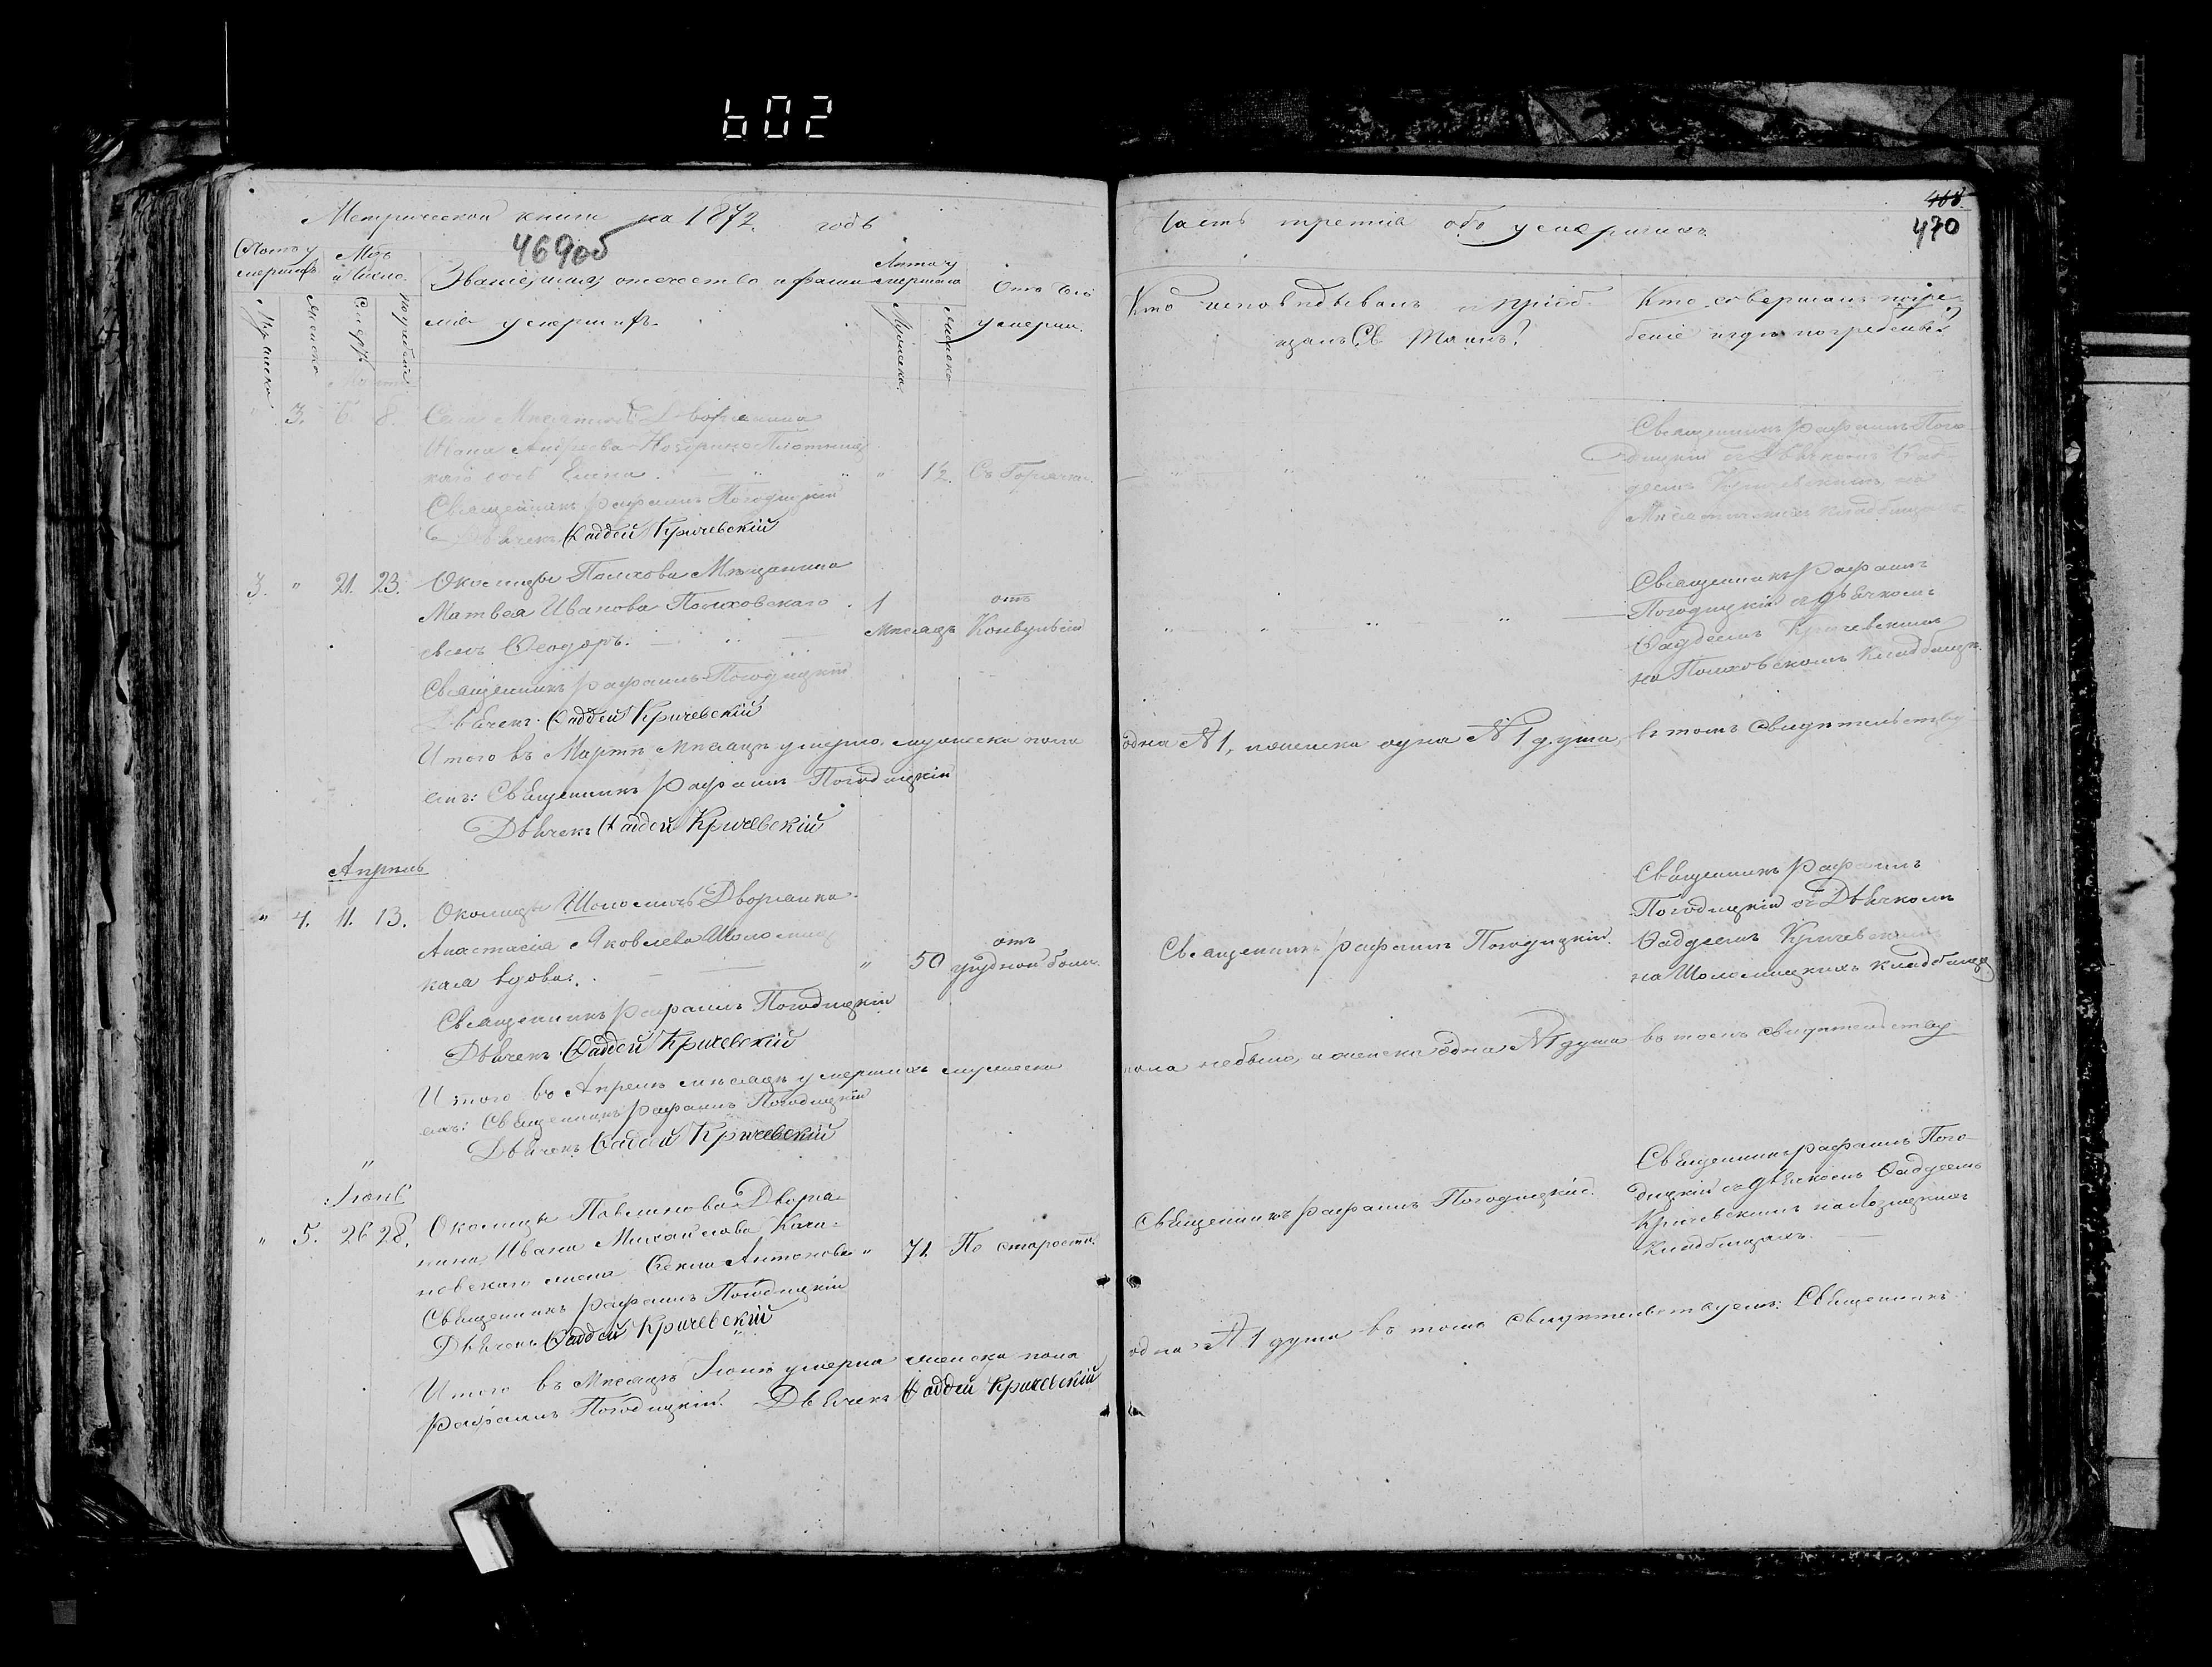 602
Метрической книги на 1872 годъ
469об
Часть третія объ умершихъ
468
470
Званіе, имя, отчество и фами-
лія умершихъ.
Мужеска
Женска
Лѣта умершаго
Отъ чего
умеръ.
Кто исповѣдывалъ и пріоб-
щалъ Св. Тайнъ?
Кто совершалъ погре-
беніе и гдѣ погребены?
3. 6. 8. Дворянина
Ивана Андреева
дочь Елена. 12. Съ Горячк.
Священникъ Рафаилъ Погодицкій
Дьячекъ Фаддей Кричевскій
Священникъ Рафаилъ Пого-
дицкій съ Дьячкомъ Фад-
деемъ Кричевскимъ на
кладбищѣ
3. " 21. 23. Околицы Полхова Мѣщанина
Матвея Иванова Полховскаго 1 отъ
сынъ Ѳеодоръ. Мѣсяцъ Конвульсіи
Священникъ Рафаилъ Погодицкій
Дьячекъ Фаддей Кричевскій
Священникъ Рафаилъ
Погодицкій съ дьячкомъ
Фаддеемъ Кричевскимъ
на Полховскомъ Кладбищѣ.
Итого въ Мартѣ мѣсяцѣ умерло мужеска пола одна № 1, женска одна № 1 душа, въ томъ свидѣтельству-
емъ: Священникъ Рафаилъ Погодицкій
Дьячекъ Фаддей Кричевскій
Апрѣль
" 4. 11. 13. Околицы Шоломичъ Дворянка
Анастасія Яковлева Шоломиц- отъ
кая вдова. " 50 грудной боли.
Священникъ Рафаилъ Погодицкій
Дьячекъ Фаддей Кричевскій
Священникъ Рафаилъ Погодицкій.
Священникъ Рафаилъ
Погодицкій съ Дьячкомъ
Фаддеемъ Кричевскимъ
на Шоломицкихъ кладбищахъ
Итого въ Апрѣлѣ мѣсяцѣ умершихъ мужеска пола небыло, а женска одна № 1 душа въ томъ свидѣтельству-
емъ: Священникъ Рафаилъ Погодицкій
Дьячекъ Фаддей Кричевскій
Іюнь
" 5. 26 28. Околицы Павлинова Дворя-
нина Ивана Михайлова Кали-
новскаго жена Антонова " 71. По старости.
Священникъ Рафаилъ Погодицкій
Дьячекъ Фаддей Кричевскій
Священникъ Рафаилъ Погодицкій.
Священникъ Рафаилъ Пого-
дицкій съ дьячкомъ Фаддеемъ
Кричевскимъ на
кладбищахъ.
Итого въ Мѣсяцѣ Іюнѣ умерла женска пола одна № 1 душа въ томъ свидѣтельствуемъ: Священникъ
Рафаилъ Погодицкій. Дьячекъ Фаддей Кричевскій